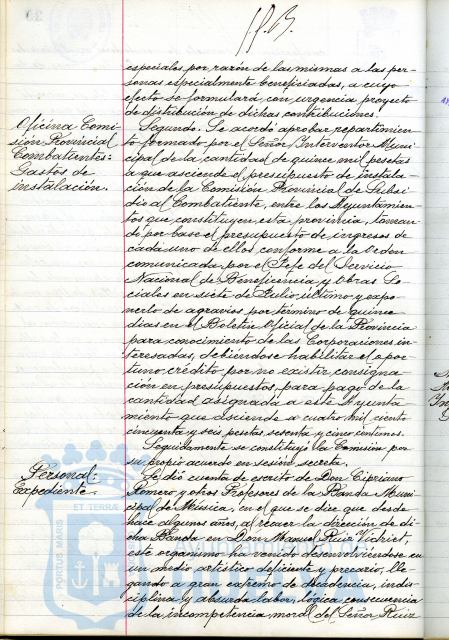 especiales por razón de las mismas a las per-
sonas especialmente beneficiadas, a cuyo
efecto se formulará con urgencia proyecto
de distribución de dichas contribuciones.
Oficina Comi-
sión Provincial
Combatientes:
Gastos de
instalación.
Segundo. Se acordó aprobar repartimien-
to formado por el Señor Interventor Muni-
cipal de la cantidad de quince mil pesetas
a que asciende el presupuesto de instala-
ción de la Comisión Provincial de Subsi-
dio al Combatiente, entre los Ayuntamien-
tos que constituyen esta provincia, toman-
do por base el presupuesto de ingresos de
cada uno de ellos, conforme a la Orden
comunicada por el Jefe del Servicio
Nacional de Beneficencia y Obras So-
ciales en siete de Julio último y expo-
nerlo de agravios por término de quince
días en el Boletín Oficial de la Provincia
para conocimiento de las Corporaciones in-
teresadas, debiéndose habilitar el opor-
tuno crédito por no existir consigna-
ción en presupuestos, para pago de la
cantidad asignada a este Ayunta-
miento que asciende a cuatro mil ciento
cincuenta y seis pesetas, sesenta y cinco céntimos.
Seguidamente se constituyó la Comisión por
su propio acuerdo en sesión secreta.
Personal:
Expediente
Se dio cuenta de escrito de Don Cipriano
Romero y otros Profesores de la Banda Muni-
cipal de Música, en el que se dice que desde
hace algunos años, al recaer la dirección de di-
cha Banda en Don Manuel Ruiz Vidriet,
este organismo ha venido desenvolviéndose en
un medio artístico deficiente y precario, lle-
gando a gran extremo de decadencia, indis-
ciplina y absurda labor, lógica consecuencia
de la incompetencia moral del Señor Ruiz
PORTUS MARIS
ET TERRÆ